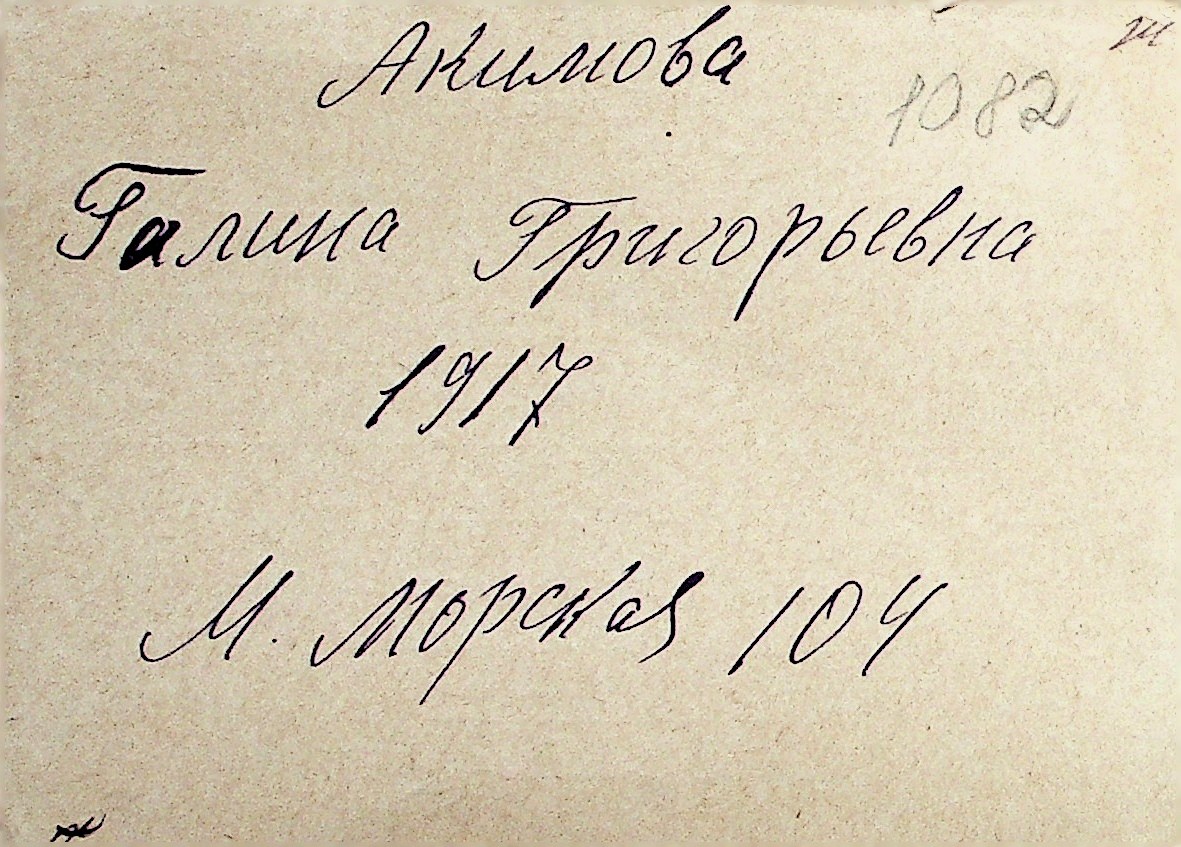 Акимова
1082
Галина Григорьевна
1917
М. Морская 104